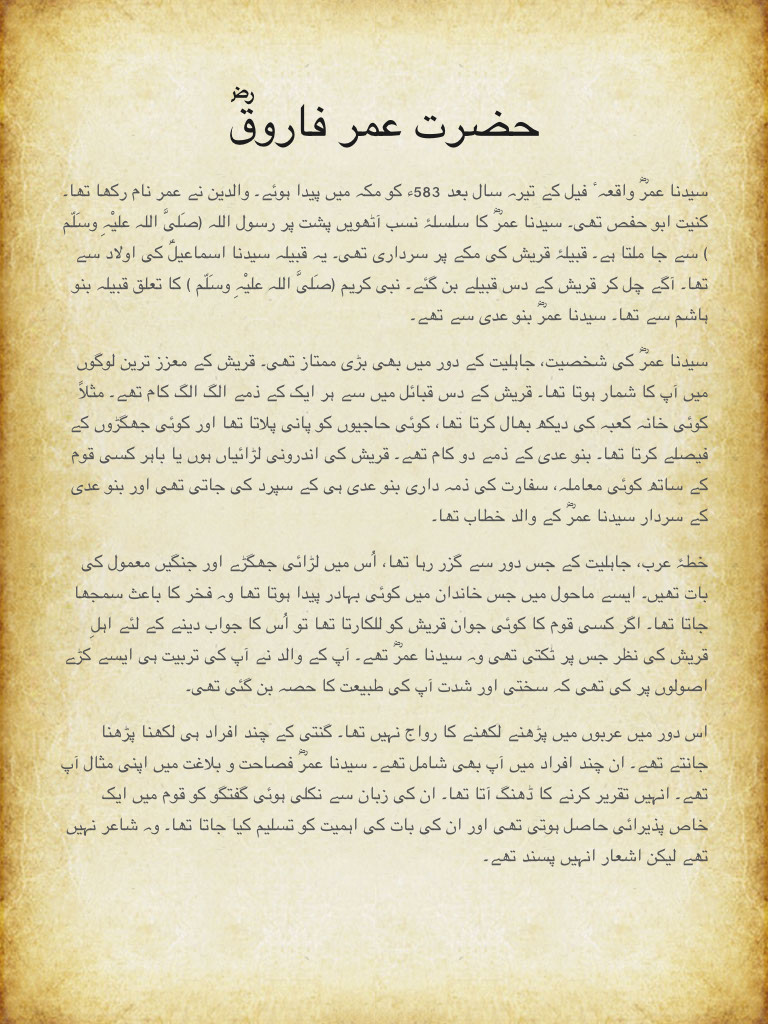 حضرت عمر فاروقؓ
سیدنا عمرؓ واقعہٴ فیل کے تیرہ سال بعد 583ء کو مکہ میں پیدا ہوئے۔ والدین نے عمر نام رکھا تھا۔
کنیت ابو حفص تھی۔ سیدنا عمرؓ کا سلسلۂ نسب آٹھویں پشت پر رسول اللہ (صَلیَّ اللہ علیْہِ وسَلَّم
) سے جا ملتا ہے۔ قبیلۂ قریش کی مکے پر سرداری تھی۔ یہ قبیلہ سیدنا اسماعیلؑ کی اولاد سے
تھا۔ آگے چل کر قریش کے دس قبیلے بن گئے۔ نبی کریم (صَلیَّ اللہ علیْہِ وسَلَّم ) کا تعلق قبیلہ بنو
ہاشم سے تھا۔ سیدنا عمرؓ بنو عدی سے تھے۔
سیدنا عمرؓ کی شخصیت، جاہلیت کے دور میں بھی بڑی ممتاز تھی۔ قریش کے معزز ترین لوگوں
میں آپ کا شمار ہوتا تھا۔ قریش کے دس قبائل میں سے ہر ایک کے ذمے الگ الگ کام تھے۔ مثلاً
کوئی خانہ کعبہ کی دیکھ بھال کرتا تھا، کوئی حاجیوں کو پانی پلاتا تھا اور کوئی جھگڑوں کے
فیصلے کرتا تھا۔ بنو عدی کے ذمے دو کام تھے۔ قریش کی اندرونی لڑائیاں ہوں یا باہر کسی قوم
کے ساتھ کوئی معاملہ، سفارت کی ذمہ داری بنو عدی ہی کے سپرد کی جاتی تھی اور بنو عدی
کے سردار سیدنا عمرؓ کے والد خطاب تھا۔
خطۂ عرب، جاہلیت کے جس دور سے گزر رہا تھا، اُس میں لڑائی جھگڑے اور جنگیں معمول کی
بات تھیں۔ ایسے ماحول میں جس خاندان میں کوئی بہادر پیدا ہوتا تھا وہ فخر کا باعث سمجھا
جاتا تھا۔ اگر کسی قوم کا کوئی جوان قریش کو للکارتا تھا تو اُس کا جواب دینے کے لئے اہلِ
قریش کی نظر جس پر ٹکتی تھی وہ سیدنا عمرؓ تھے۔ آپ کے والد نے آپ کی تربیت ہی ایسے کڑے
اصولوں پر کی تھی کہ سختی اور شدت آپ کی طبیعت کا حصہ بن گئی تھی۔
اس دور میں عربوں میں پڑھنے لکھنے کا رواج نہیں تھا۔ گنتی کے چند افراد ہی لکھنا پڑھنا
جانتے تھے۔ ان چند افراد میں آپ بھی شامل تھے۔ سیدنا عمرؓ فصاحت و بلاغت میں اپنی مثال آپ
تھے۔ انہیں تقریر کرنے کا ڈھنگ آتا تھا۔ ان کی زبان سے نکلی ہوئی گفتگو کو قوم میں ایک
خاص پذیرائی حاصل ہوتی تھی اور ان کی بات کی اہمیت کو تسلیم کیا جاتا تھا۔ وہ شاعر نہیں
تھے لیکن اشعار انہیں پسند تھے۔